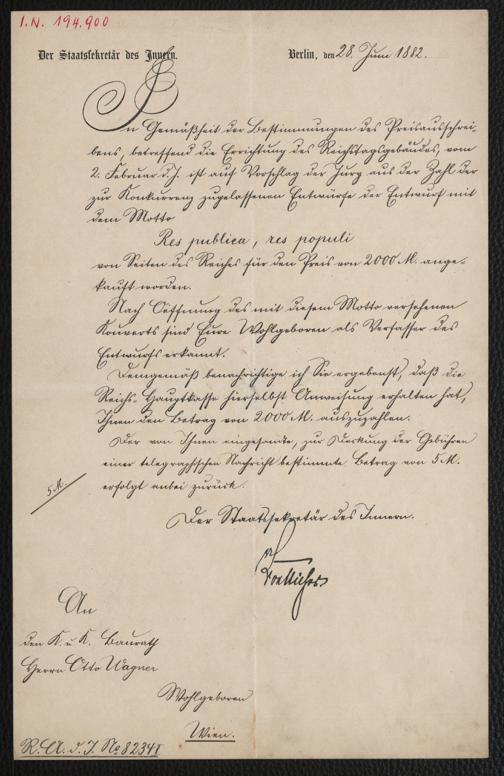 I.N. 194.900
Der Staatssekretär des Innern.
Berlin, den 28. Juni 1882.
In Gemäßheit der Bestimmungen des Preisausschrei-
bens, betreffend die Errichtung des Reichstagsgebäudes, vom
2. Februar d. J. ist auf Vorschlag der Jury aus der Zahl der
zur Konkurrenz zugelassenen Entwürfe der Entwurf mit
dem Motto
Res publica, res populi
von Seiten des Reiches für den Preis von 2000 M. ange-
kauft worden.
Nach Oeffnung des mit diesem Motto versehenen
Kouverts sind Eure Wohlgeboren als Verfasser des
Entwurfs erkannt.
Demgemäß benachrichtige ich Sie ergebenst, daß die
Reichs-Hauptkasse hierselbst Anweisung erhalten hat,
Ihnen den Betrag von 2000 M. auszuzahlen.
Der von Ihnen eingesandte, zur Deckung der Gebühren
einer telegraphischen Nachricht bestimmte Betrag von 5 M.
erfolgt anbei zurück.
5 M.
Der Staatssekretär des Innern.
Boetticher
An
den K. u. K. Baurath
Herrn Otto Wagner
Wohlgeboren
Wien.
R. A. d. J. No 8234I